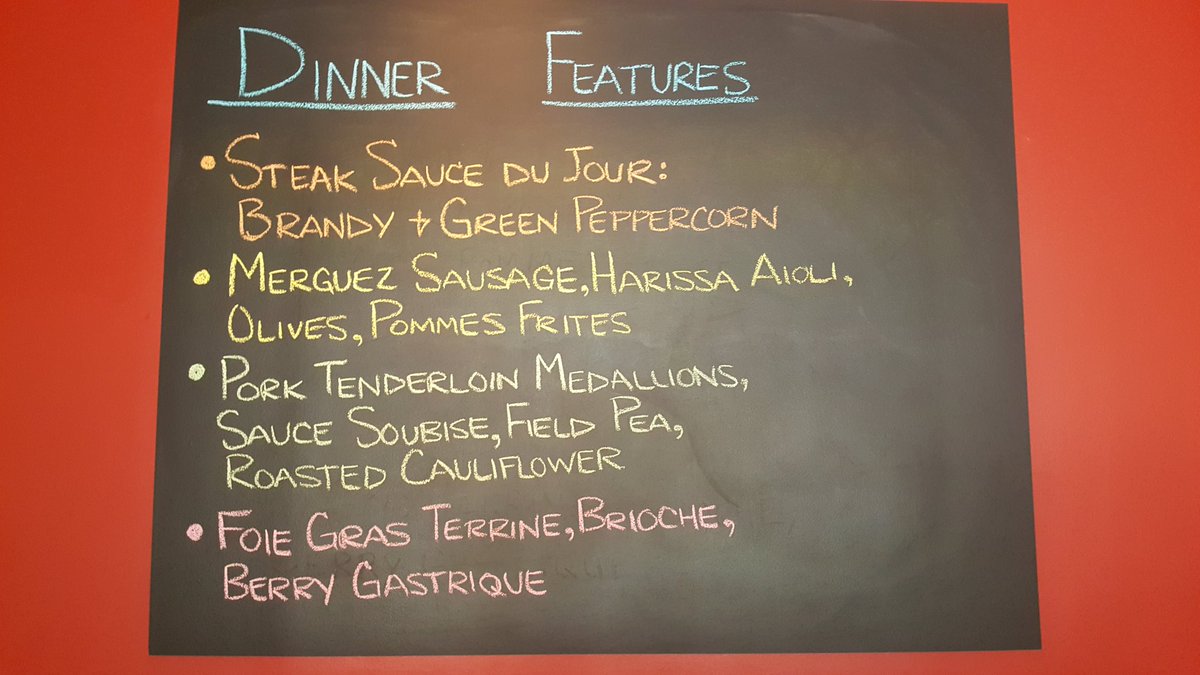 DINNER FEATURES
• STEAK SAUCE DU JOUR:
BRANDY + GREEN PEPPERCORN
• MERGUEZ SAUSAGE, HARISSA AIOLI,
OLIVES, POMMES FRITES
• PORK TENDERLOIN MEDALLIONS,
SAUCE SOUBISE, FIELD PEA,
ROASTED CAULIFLOWER
• FOIE GRAS TERRINE, BRIOCHE,
BERRY GASTRIQUE